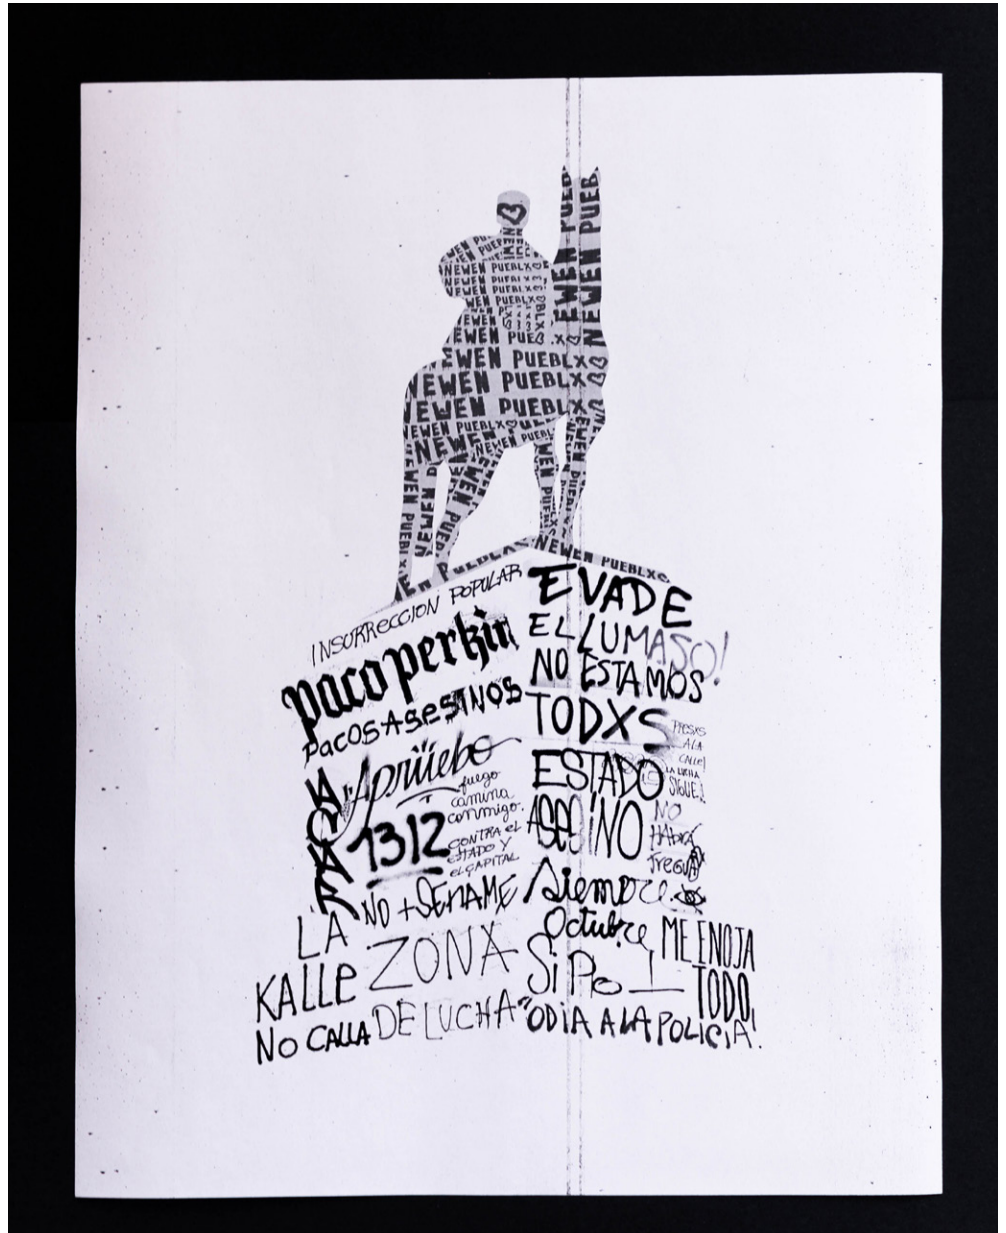 NEWEN PUEBLX
NEWEN PUEBLX
NEWEN PUEBLX
NEWEN PUEBLX
NEWEN PUEBLX
NEWEN PUEBLX
NEWEN PUEBLXS
INSURRECCION POPULAR
paco perkin
PACOS ASESINOS
Aprüebo
fuego
camina
conmigo.
1312
CONTRA el
ESTADO Y
el CAPITAL
NO + SENAME
LA
KALLE
NO CALLA
ZONA
DE LUCHA
EVADE
EL LUMASO!
NO ESTAMOS
TODXS
PRESXS
A LA
CALLE!
LA LUCHA
SIGUE!
ESTADO
ASESINO
NO
HABRÁ
TREGUA
Siempre
Octubre
ME ENOJA
TODO!
"ODIA A LA POLICIA.